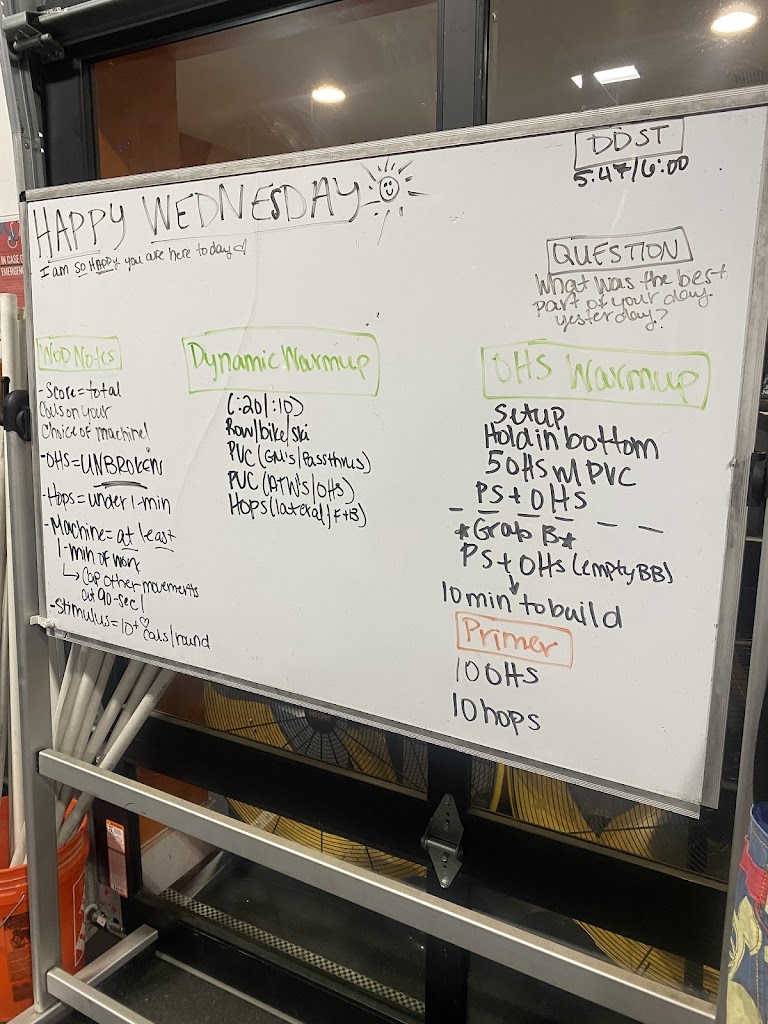 HAPPY WEDNESDAY
I am SO HAPPY you are here today
DDST
5:47/6:00
QUESTION
What was the best
part of your day
yesterday?
WOD Notes
-Score=total
Cals on your
choice of machine!
-OHS=UNBROKEN
-Hops=under 1-min
-Machine=at least
1-min of work
↳ Cap other movements
at 90-sec!
-Stimulus=10+ cals/round
Dynamic Warmup
(:20/:10)
Row/bike/ski
PVC (GM's/Passthrus)
PVC (ATW's/OHS)
Hops (lateral/F+B)
OHS Warmup
Setup
Hold in bottom
5 OHS w/ PVC
PS + OHS
*Grab B*
PS + OHS (empty BB)
10 min to build
Primer
10 OHS
10 hops
IN CASE O
EMERGENC